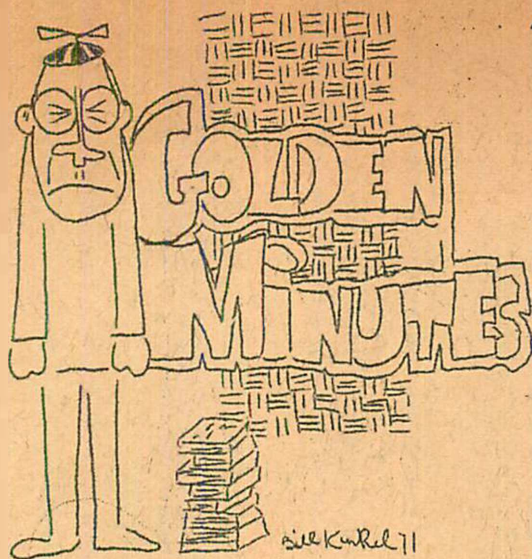 GOLDEN
MINUTES
Bill Kunkel 71